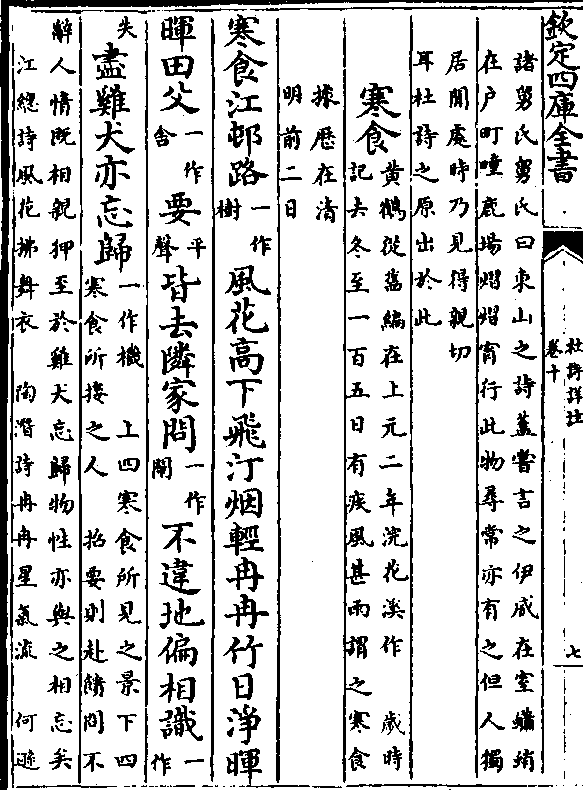 欽定四庫全書
杜詩詳註
卷十
七
諸舅氏舅氏曰東山之詩葢嘗言之伊威在室蠨蛸
在户町畽鹿場熠熠宵行此物尋常亦有之但人獨
居閒處時乃見得親切
耳杜詩之原出於此
寒食 黄鶴從舊編在上元二年浣花溪作 歳時
記去冬至一百五日有疾風甚雨謂之寒食
據歴在清
明前二日
寒食江邨路一作樹風花高下飛汀烟輕冉冉竹日浄暉
暉田父一作舍要平聲皆去隣家問一作鬧不違地偏相識一作
失盡雞犬亦忘歸一作機 上四寒食所見之景下四
寒食所接之人 招要則赴饋問不
辭人情既相親狎至於雞犬忘歸物性亦與之相忘矣
江總詩風花拂舞衣 陶潛詩冉冉星氣流 何遜